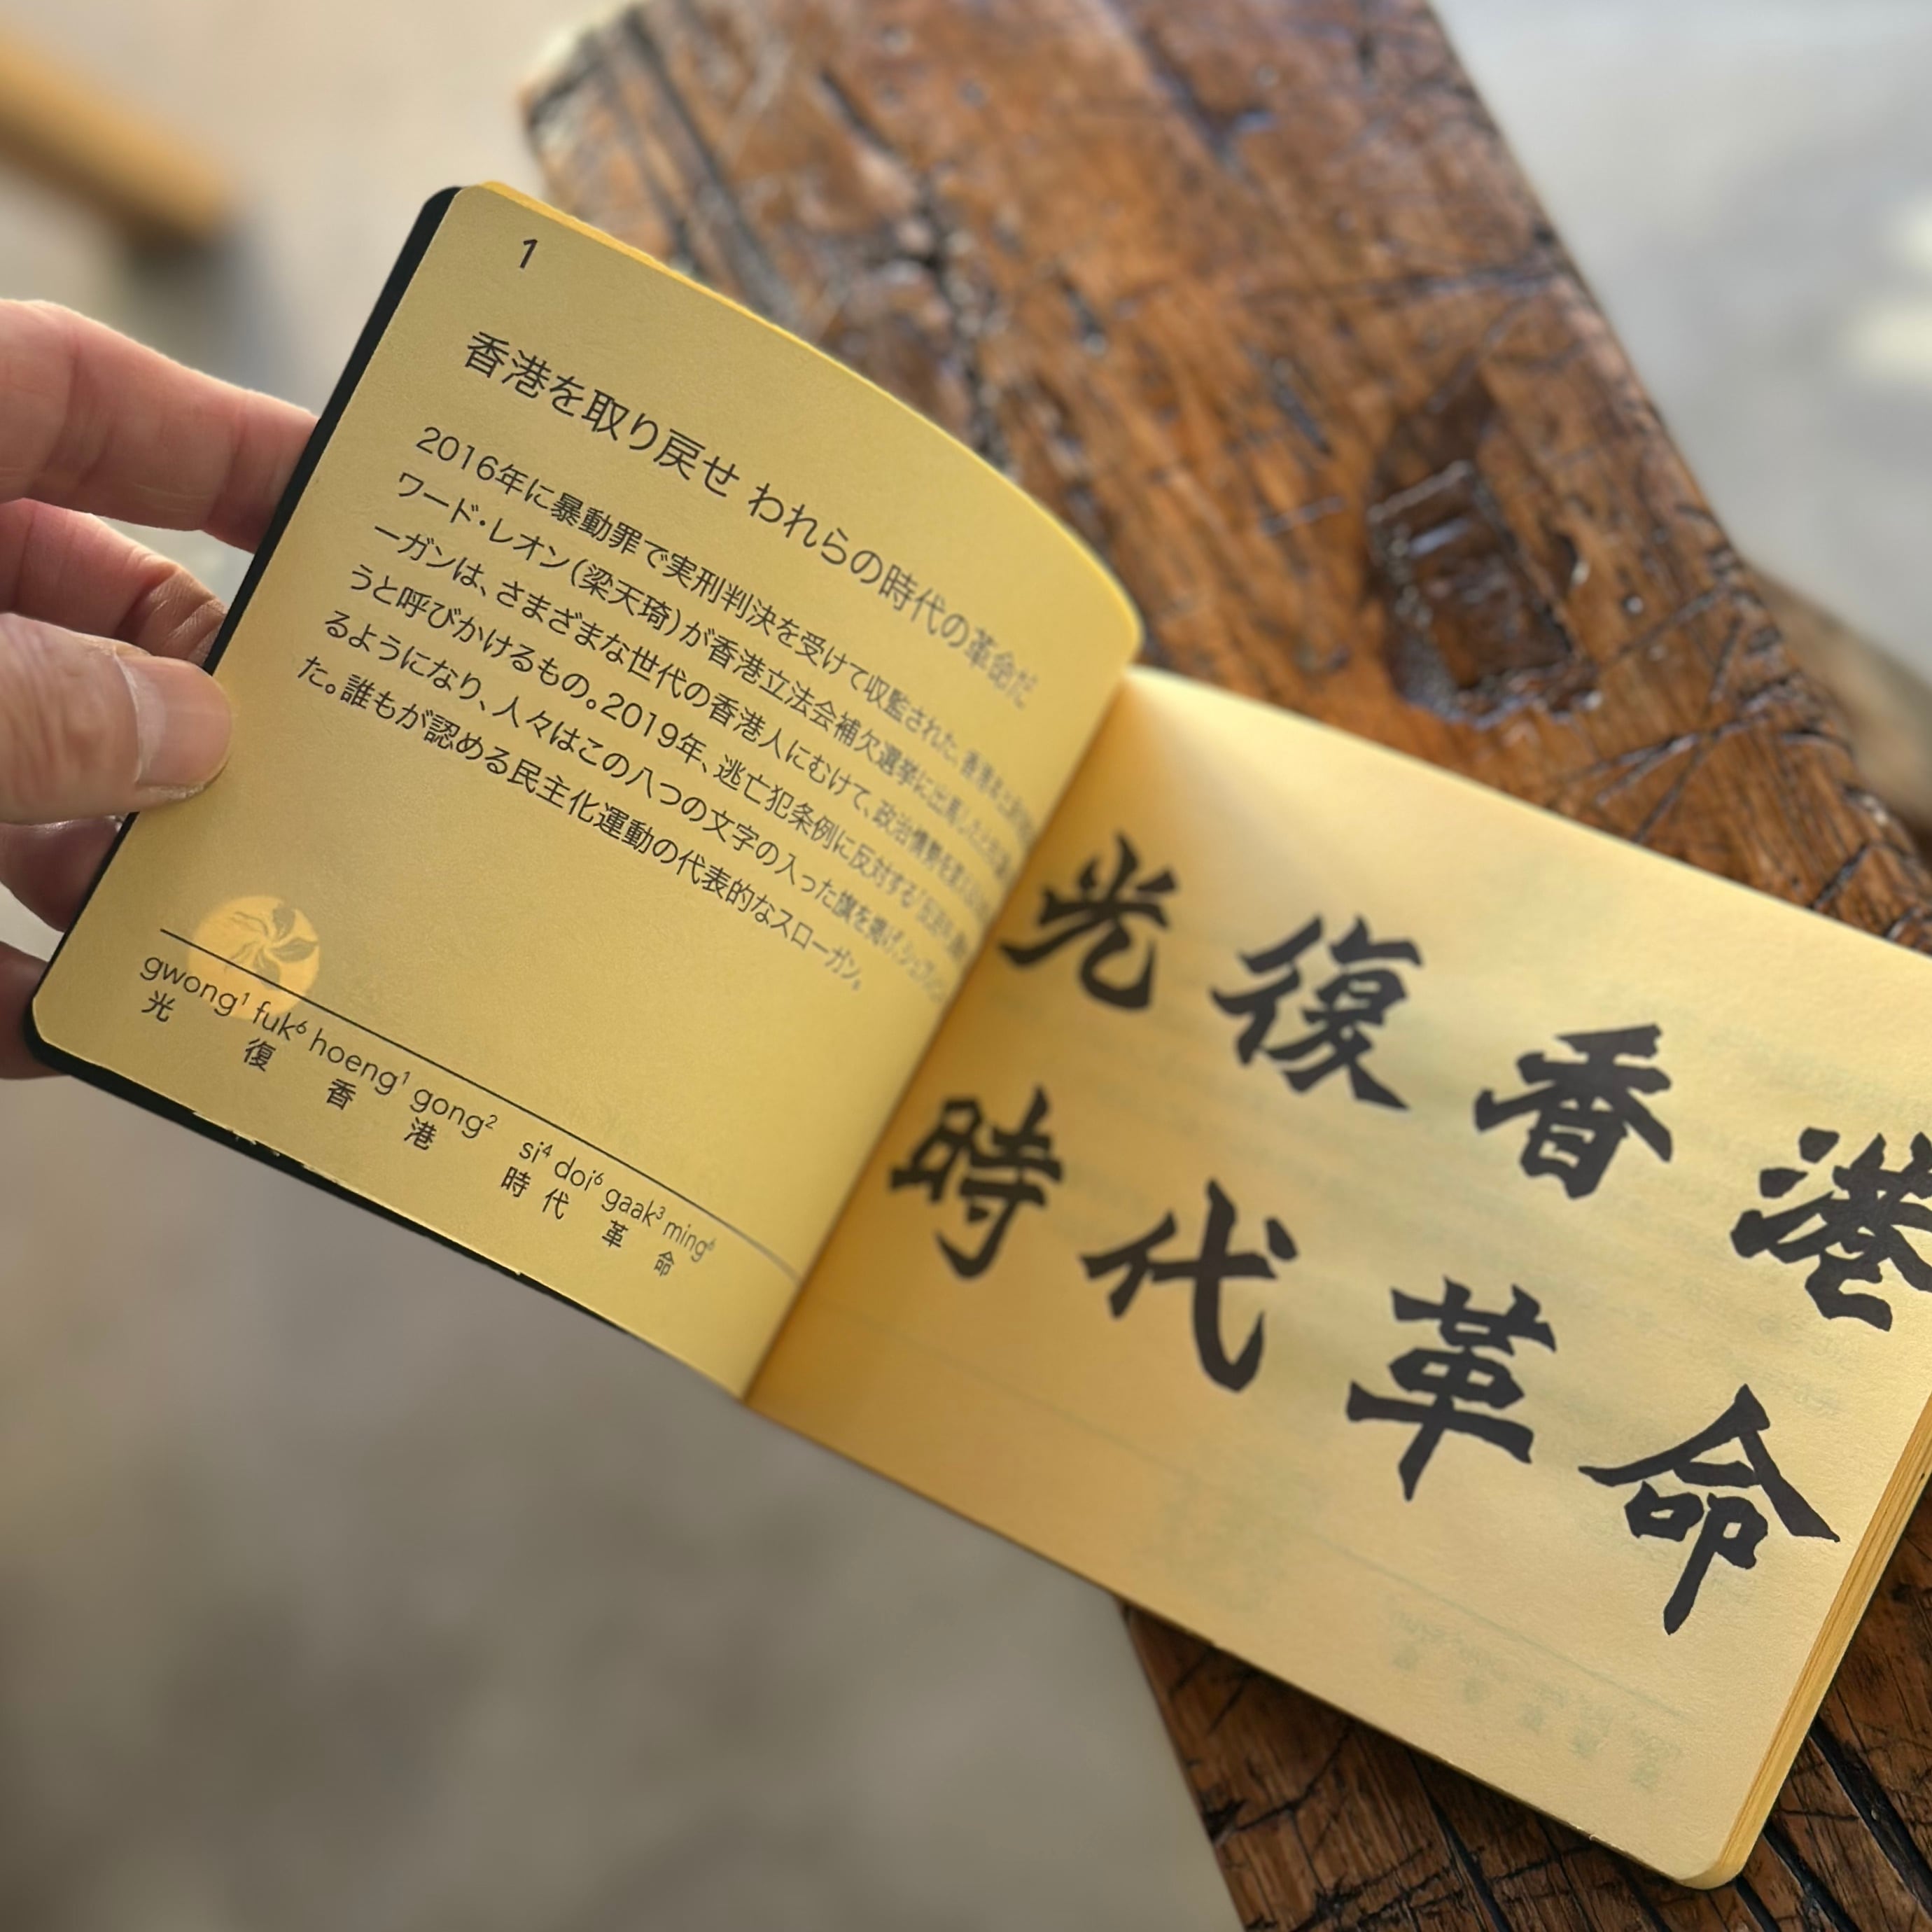 1
香港を取り戻せ われらの時代の革命だ
2016年に暴動罪で実刑判決を受けて収監された、香港
ワード・レオン(梁天琦)が香港立法会補欠選挙に出馬した
ーガンは、さまざまな世代の香港人にむけて、政治情勢を
うと呼びかけるもの。2019年、逃亡犯条例に反対する
るようになり、人々はこの八つの文字の入った旗を掲げ、
た。誰もが認める民主化運動の代表的なスローガン。
gwong¹ fuk⁶ hoeng¹ gong² si⁴ doi⁶ gaak³ ming⁶
光 復 香 港 時 代 革 命
光復香港
時代革命